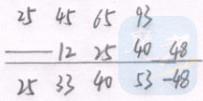 25 45 65 93
— 12 25 40 48
25 33 40 53 -48